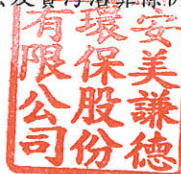 安美謙德
環保股份
有限公司